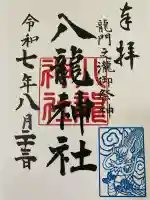 奉拝
龍門之瀧御祭神
八龍神社
令和七年八月二十三日